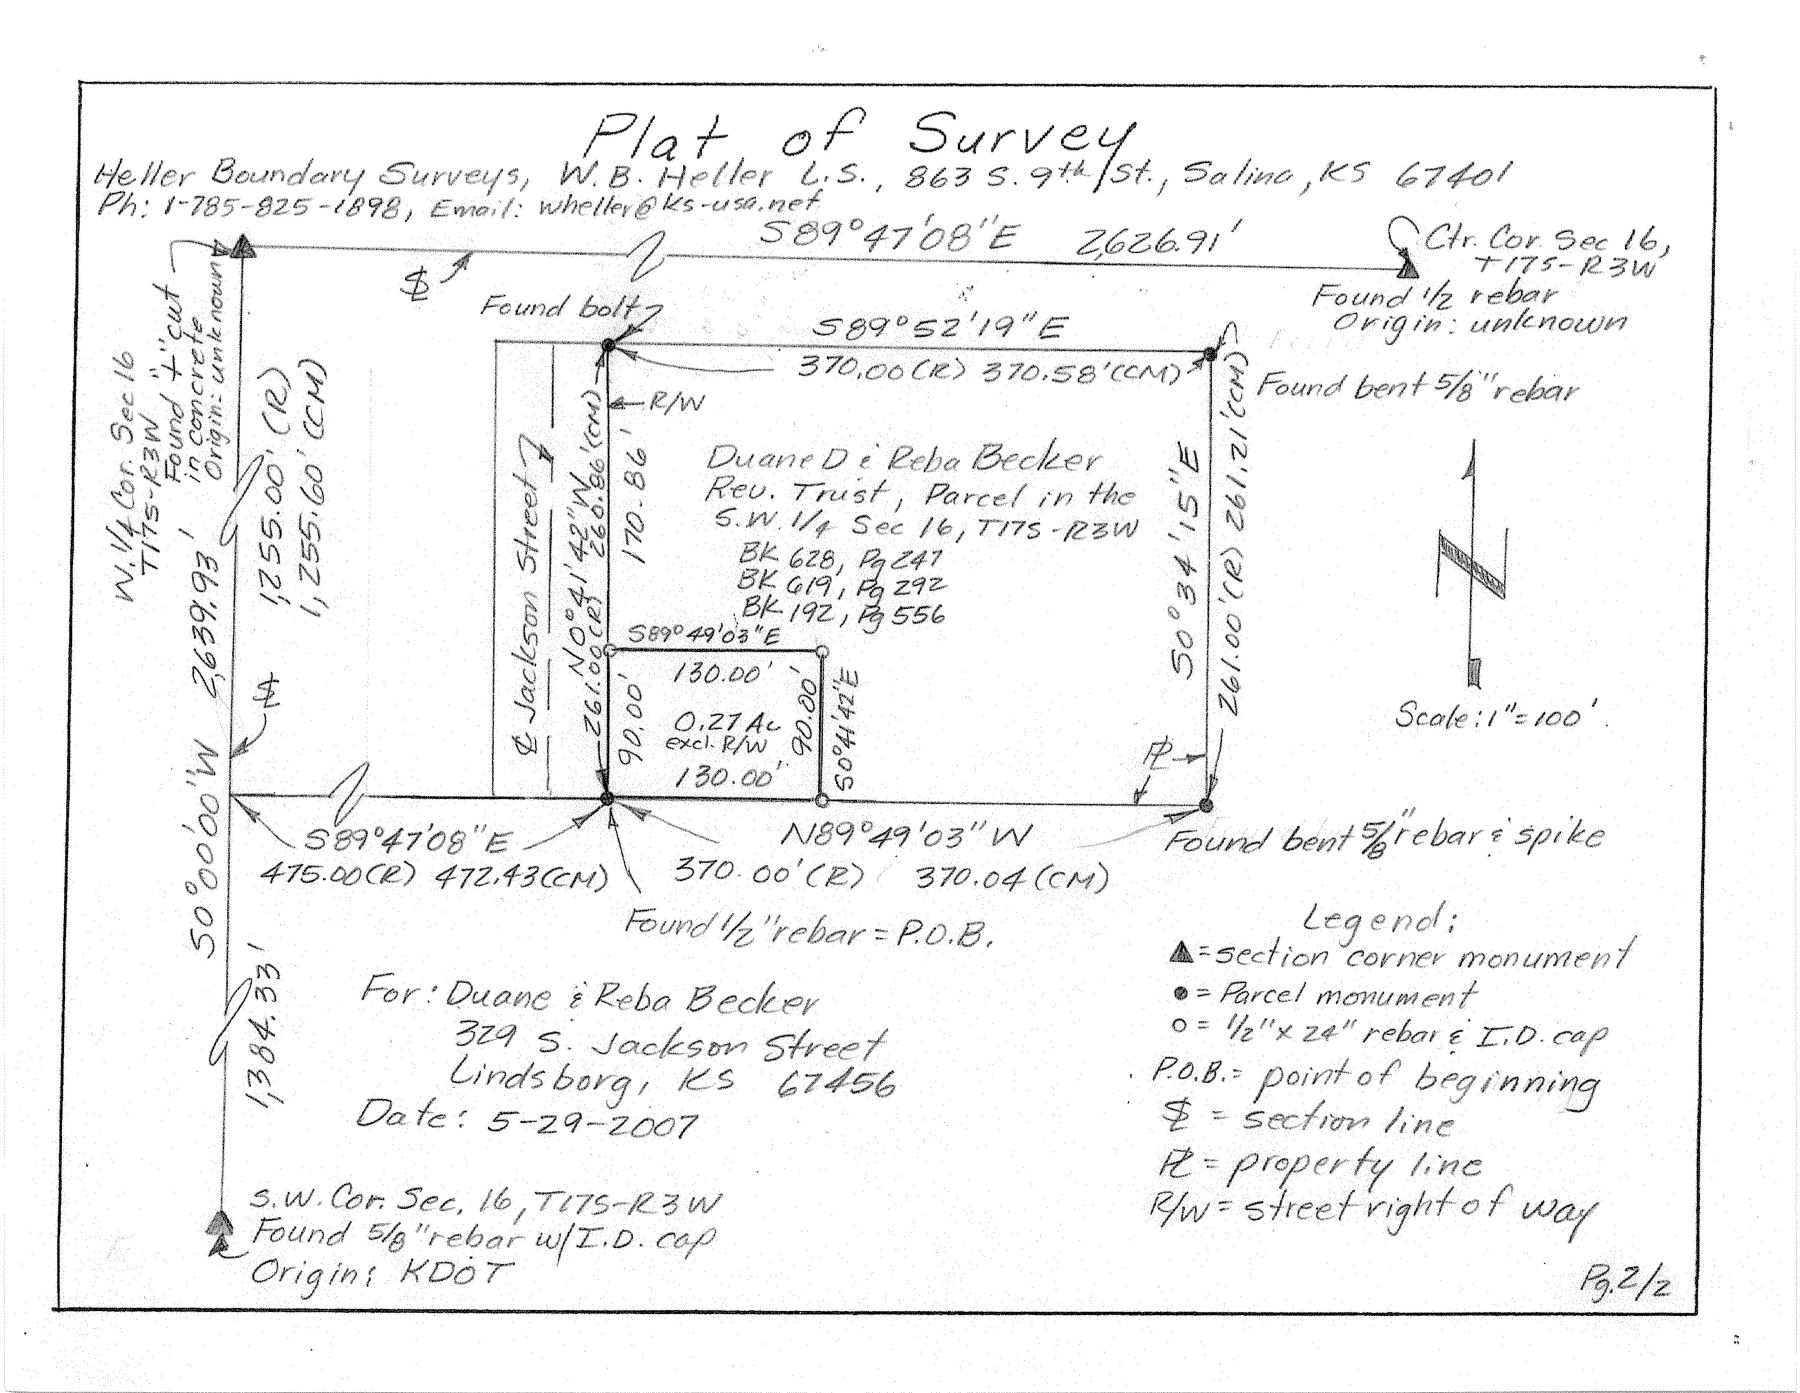 Plat of Survey
Heller Boundary Surveys, W.B. Heller L.S., 863 S. 9th St., Salina, KS 67401
Ph: 1-785-825-1898, Email: wheller@ks-usa.net
S89°47'08"E 2,626.91'
Ctr. Cor. Sec 16,
T17S-R3W
Found 1/2 rebar
Origin: unknown
W. 1/4 Cor. Sec 16
T17S-R3W
Found "+" cut
in concrete
Origin: unknown
1,255.00' (R)
1,255.60' (CM)
S0°00'00"W 2,639.93'
1,384.33'
Found bolt
S89°52'19"E
370.00(R) 370.58'(CM)
Found bent 5/8" rebar
R/W
℄ Jackson Street
N0°41'42"W
261.00(R) 260.86'(CM)
170.86'
Duane D & Reba Becker
Rev. Trust, Parcel in the
S.W. 1/4 Sec 16, T17S-R3W
BK 628, Pg 247
BK 619, Pg 292
BK 192, Pg 556
S0°34'15"E
261.00'(R) 261.21'(CM)
S89°49'03"E
130.00'
90.00'
0.27 Ac
excl. R/W
90.00'
S0°41'42"E
130.00'
PL
Scale: 1"=100'.
S89°47'08"E
475.00(R) 472.43(CM)
N89°49'03"W
370.00'(R) 370.04(CM)
Found bent 5/8" rebar & spike
Found 1/2" rebar = P.O.B.
For: Duane & Reba Becker
329 S. Jackson Street
Lindsborg, KS 67456
Date: 5-29-2007
Legend:
▲=section corner monument
●= Parcel monument
○= 1/2" x 24" rebar & I.D. cap
P.O.B.= point of beginning
SL = section line
PL = property line
R/W= street right of way
S.W. Cor. Sec. 16, T17S-R3W
Found 5/8" rebar w/I.D. cap
Origin: KDOT
Pg. 2/2